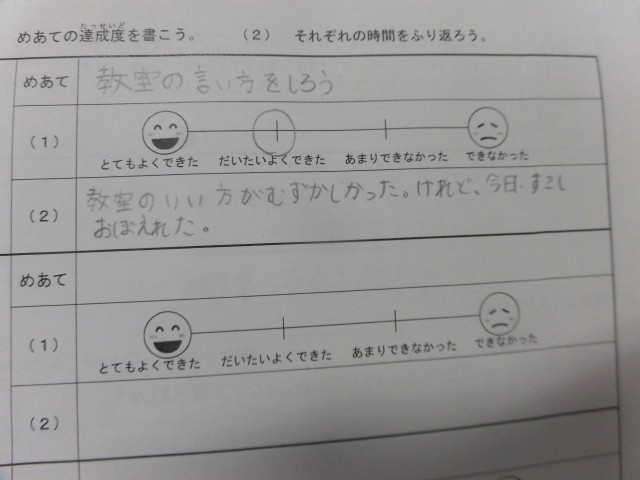 めあての達成度を書こう。 （2） それぞれの時間をふり返ろう。
たっせいど
めあて 教室の言い方をしろう
（1）
とてもよくできた だいたいよくできた あまりできなかった できなかった
（2） 教室のいい方がむずかしかった。けれど、今日、すこし
おぼえれた。
めあて
（1）
とてもよくできた だいたいよくできた あまりできなかった できなかった
（2）